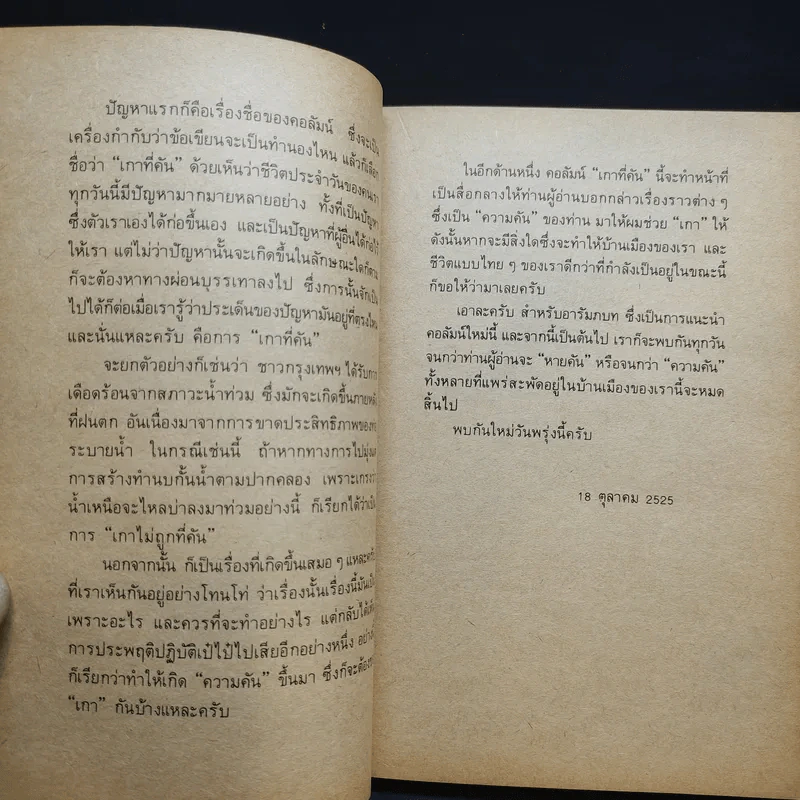 ปัญหาแรกก็คือเรื่องชื่อของคอลัมน์ ซึ่งจะเป็น
เครื่องกำกับว่าข้อเขียนจะเป็นทำนองไหน แล้วก็เลือก
ชื่อว่า “เกาที่คัน” ด้วยเห็นว่าชีวิตประจำวันของคนเรา
ทุกวันนี้มีปัญหามากมายหลายอย่าง ทั้งที่เป็นปัญหา
ซึ่งตัวเราเองได้ก่อขึ้นเอง และเป็นปัญหาที่ผู้อื่นได้ก่อไว้
ให้เรา แต่ไม่ว่าปัญหานั้นจะเกิดขึ้นในลักษณะใดก็ตาม
ก็จะต้องหาทางผ่อนบรรเทาลงไป ซึ่งการนั้นจักเป็น
ไปได้ก็ต่อเมื่อเรารู้ว่าประเด็นของปัญหามันอยู่ที่ตรงไหน
และนั่นแหละครับ คือการ “เกาที่คัน”
จะยกตัวอย่างก็เช่นว่า ชาวกรุงเทพฯ ได้รับการ
เดือดร้อนจากสภาวะน้ำท่วม ซึ่งมักจะเกิดขึ้นภายหลัง
ที่ฝนตก อันเนื่องมาจากการขาดประสิทธิภาพของ
ระบายน้ำ ในกรณีเช่นนี้ ถ้าหากทางการไปมุ่ง
การสร้างทำนบกั้นน้ำตามปากคลอง เพราะเกรงว่า
น้ำเหนือจะไหลบ่าลงมาท่วมอย่างนี้ ก็เรียกได้ว่าเป็น
การ “เกาไม่ถูกที่คัน”
นอกจากนั้น ก็เป็นเรื่องที่เกิดขึ้นเสมอ ๆ แหละครับ
ที่เราเห็นกันอยู่อย่างโทนโท่ ว่าเรื่องนั้นเรื่องนี้มันเป็น
เพราะอะไร และควรที่จะทำอย่างไร แต่กลับได้เห็น
การประพฤติปฏิบัติเป๋ไป๋ไปเสียอีกอย่างหนึ่ง อย่าง
ก็เรียกว่าทำให้เกิด “ความคัน” ขึ้นมา ซึ่งก็จะต้อง
“เกา” กันบ้างแหละครับ
ในอีกด้านหนึ่ง คอลัมน์ “เกาที่คัน” นี้จะทำหน้าที่
เป็นสื่อกลางให้ท่านผู้อ่านบอกกล่าวเรื่องราวต่าง ๆ
ซึ่งเป็น “ความคัน” ของท่าน มาให้ผมช่วย “เกา” ให้
ดังนั้นหากจะมีสิ่งใดซึ่งจะทำให้บ้านเมืองของเรา และ
ชีวิตแบบไทย ๆ ของเราดีกว่าที่กำลังเป็นอยู่ในขณะนี้
ก็ขอให้ว่ามาเลยครับ
เอาละครับ สำหรับอารัมภบท ซึ่งเป็นการแนะนำ
คอลัมน์ใหม่นี้ และจากนี้เป็นต้นไป เราก็จะพบกันทุกวัน
จนกว่าท่านผู้อ่านจะ “หายคัน” หรือจนกว่า “ความคัน”
ทั้งหลายที่แพร่สะพัดอยู่ในบ้านเมืองของเรานี้จะหมด
สิ้นไป
พบกันใหม่วันพรุ่งนี้ครับ
18 ตุลาคม 2525